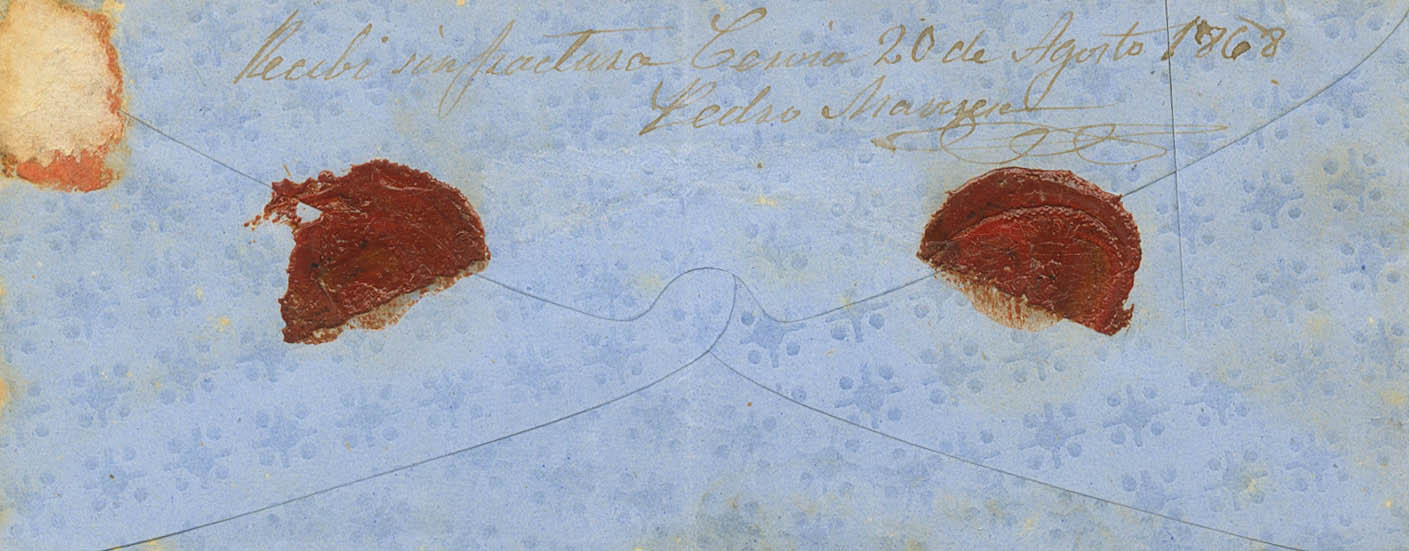 Recibi sin fractura Cervia 20 de Agosto 1868
Pedro